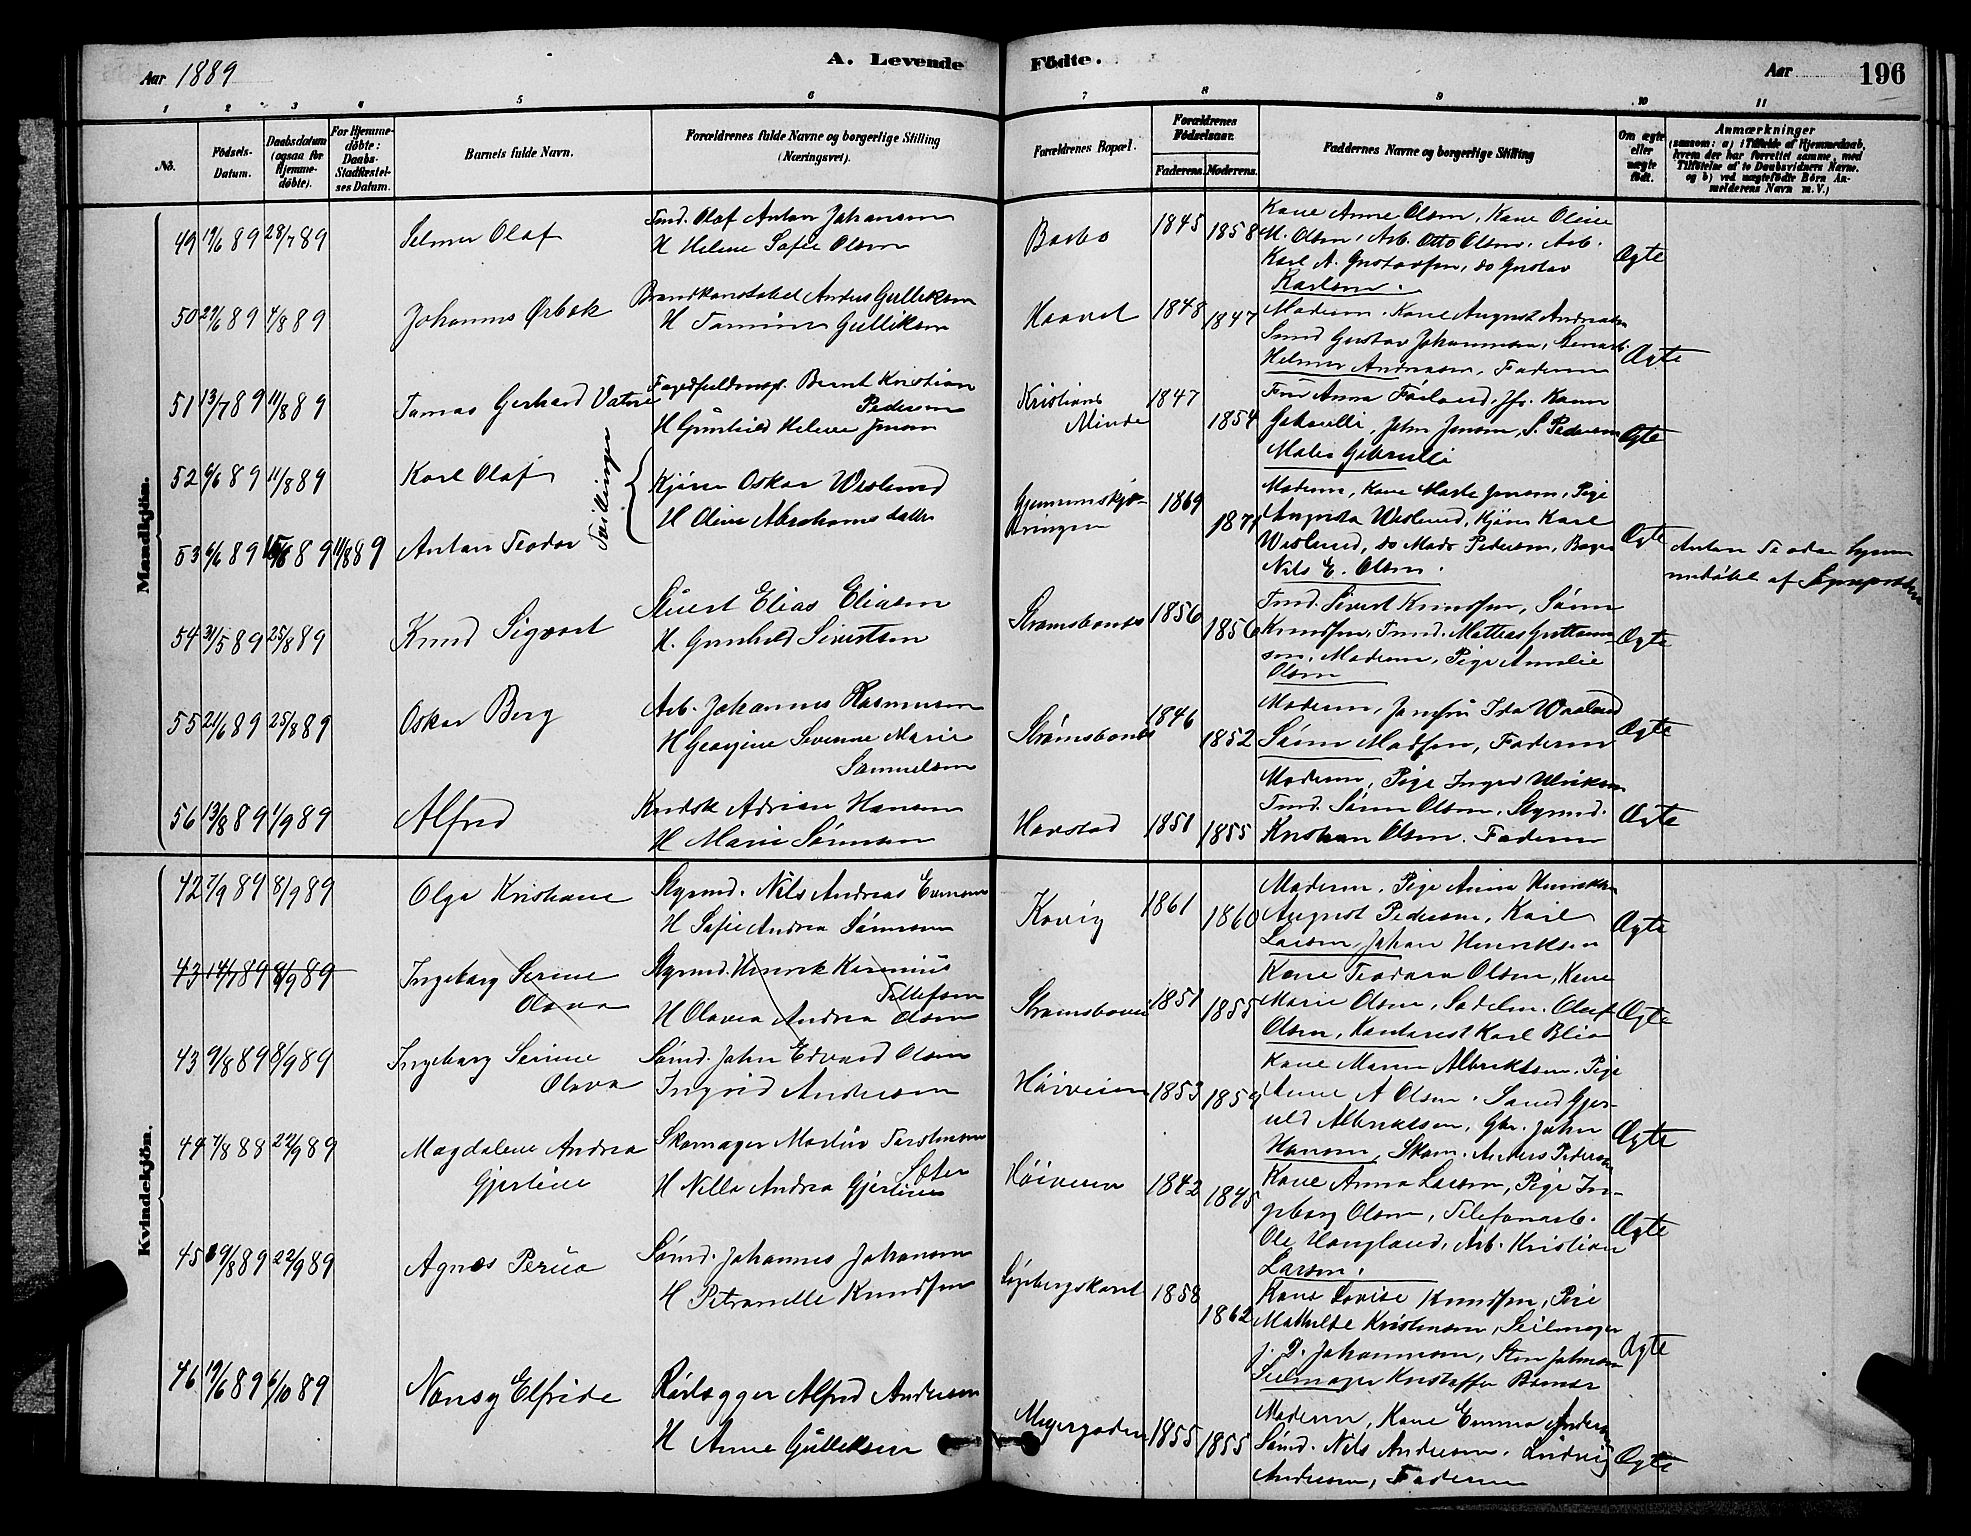 Aar 1889
A. Levende
Fødte.
Aar
196
1 2 3 4 5 6 7 8 9 10 11
No.
Fødsels-
Datum.
Daabsdatum
(ogsaa for
Hjemme-
døbte).
For Hjemme-
døbte:
Daabs-
Stadfæstel-
ses Datum.
Barnets fulde Navn.
Forældrenes fulde Navne og borgerlige Stilling
(Næringsvei).
Forældrenes Bopæl.
Forældrenes
Fødselsaar.
Faderens. Moderens.
Faddernes Navne og borgerlige Stilling
Om ægte
eller
uægte
født.
Anmærkninger
(saasom: a) i Tilfælde af Hjemmedaab,
hvem der har forrettet samme, med
Tilføielse af to Daabsvidners Navne.
og b) ved uægtefødte Børn An-
melderens Navn m. V.)
Mandkjön.
49 19/6 89 28/7 89
Selmer Olaf
Tmd. Olaf Anton Johansen
H Helene Sofie Olsen
Barbo
1845 1858
Kone Anne Olsen, Kone Oline
M. Olsen, Arb. Otto Olsen, Arb.
Karl A. Gustavsen, do Gustav
Karlsen.
Ægte
50 27/6 89 4/8 89
Johannes Ørbæk
Brandkonstabel Anders Gulliksen
H Tomine Gulliksen
1848 1847
Moderen, Kone August Andreasen
Smed Gustav Johannesen,
Helmer Andreasen, Faderen
Ægte
51 13/7 89 11/8 89
Tomas Gerhard Vatne
Bernt Kristian
Pedersen
H Gunhild Helene Jensen
Kristians
Minde
1847 1854
Fru Anna Førland, Jfr. Karen
Gabrielli, John Jensen, S. Pedersen
Mater Gabrielli
Ægte
52 6/6 89 11/8 89
Karl Olaf
Tvillinger
Kjører Oskar Weslund
H Oline Abrahamsdatter
1869 1871
Moderen, Kone Marte Jensen, Pige
Augusta Weslund, Kjører Karl
Weslund, do Mads Pedersen, Bager
Nils E. Olsen.
Ægte
53 6/6 89 89 11/8 89
Anton Teodor
Anton Teodor hjem
medøbt af
54 31/5 89 25/8 89
Knud Sigvart
Stuert Elias Eliasen
H. Gunhild Sivertsen
Strømsbonæs
1856 1856
Tmd. Sivert Knudsen, Søren
Knudsen, Tmd. Mathias
sen, Moderen, Pige Amalie
Olsen
Ægte
55 21/6 89 25/8 89
Oskar Berg
Arb. Johannes Rasmussen
H Georgine Severine Marie
Samuelsen
Strømsbonæs
1846 1852
Moderen, Jomfru Ida
Søren Madsen, Faderen
Ægte
56 13/8 89 1/9 89
Alfred
Adrian Hansen
H Marie Sørensen
Havstad
1851 1855
Moderen, Pige Inger Ulriksen
Tmd. Søren Olsen, Styrmd.
Kristian Olsen, Faderen
Ægte
Kvindekjön.
42 7/9 89 8/9 89
Olga Kristiane
Styrmd. Nils Andreas Evensen
H Sofie Andrea Sørensen
Kovig
1861 1860
Moderen, Pige Anna Henriksen
August Pedersen, Karl
Larsen, Johan Henriksen
Ægte
43 14/7 89 8/9 89
Ingeborg Serine
Olava
Styrmd. Henrik Rasmus
Tellefsen
H Olavia Andrea Olsen
Strømsboveien
1851 1855
Kone Teodora Olsen, Kone
Marie Olsen, Sadelm. Oluf
Olsen, Kontorist Karl
Ægte
43 9/8 89 8/9 89
Ingeborg Serine
Olava
Sømd. John Edvard Olsen
Ingrid Andersen
Høiveien
1853 1854
Kone Maren Albriktsen, Pige
Anne A Olsen, Sømd Gjer-
uld Albriktsen, Gbr. John
Hansen, Skom. Anders Pedersen
Ægte
44 7/8 88 22/9 89
Magdalene Andrea
Gjertine
Skomager Martin Torstensen
Sæter
H Nilla Andrea Gjertine
Høiveien
1842 1845
Kone Anna Larsen, Pige In-
geborg Olsen, Telefonarb.
Ole Haugland, Arb. Kristian
Larsen.
Ægte
45 19/8 89 22/9 89
Agnes Perua
Sømd. Johannes Johansen
H Petronelle Knudsen
1858 1862
Kone Lovise Knudsen, Pige
Mathilde Kristensen, Seilmager
J. D. Johannesen, Sten Johnsen
Seilmager Kristoffer
Ægte
46 19/6 89 6/10 89
Nansy Elfride
Rørlægger Alfred Andersen
H Anne Gulliksen
Meyergaden
1855 1855
Moderen, Kone Emma Andersen
Sømd. Nils Andersen, Ludvig
Andersen, Faderen
Ægte